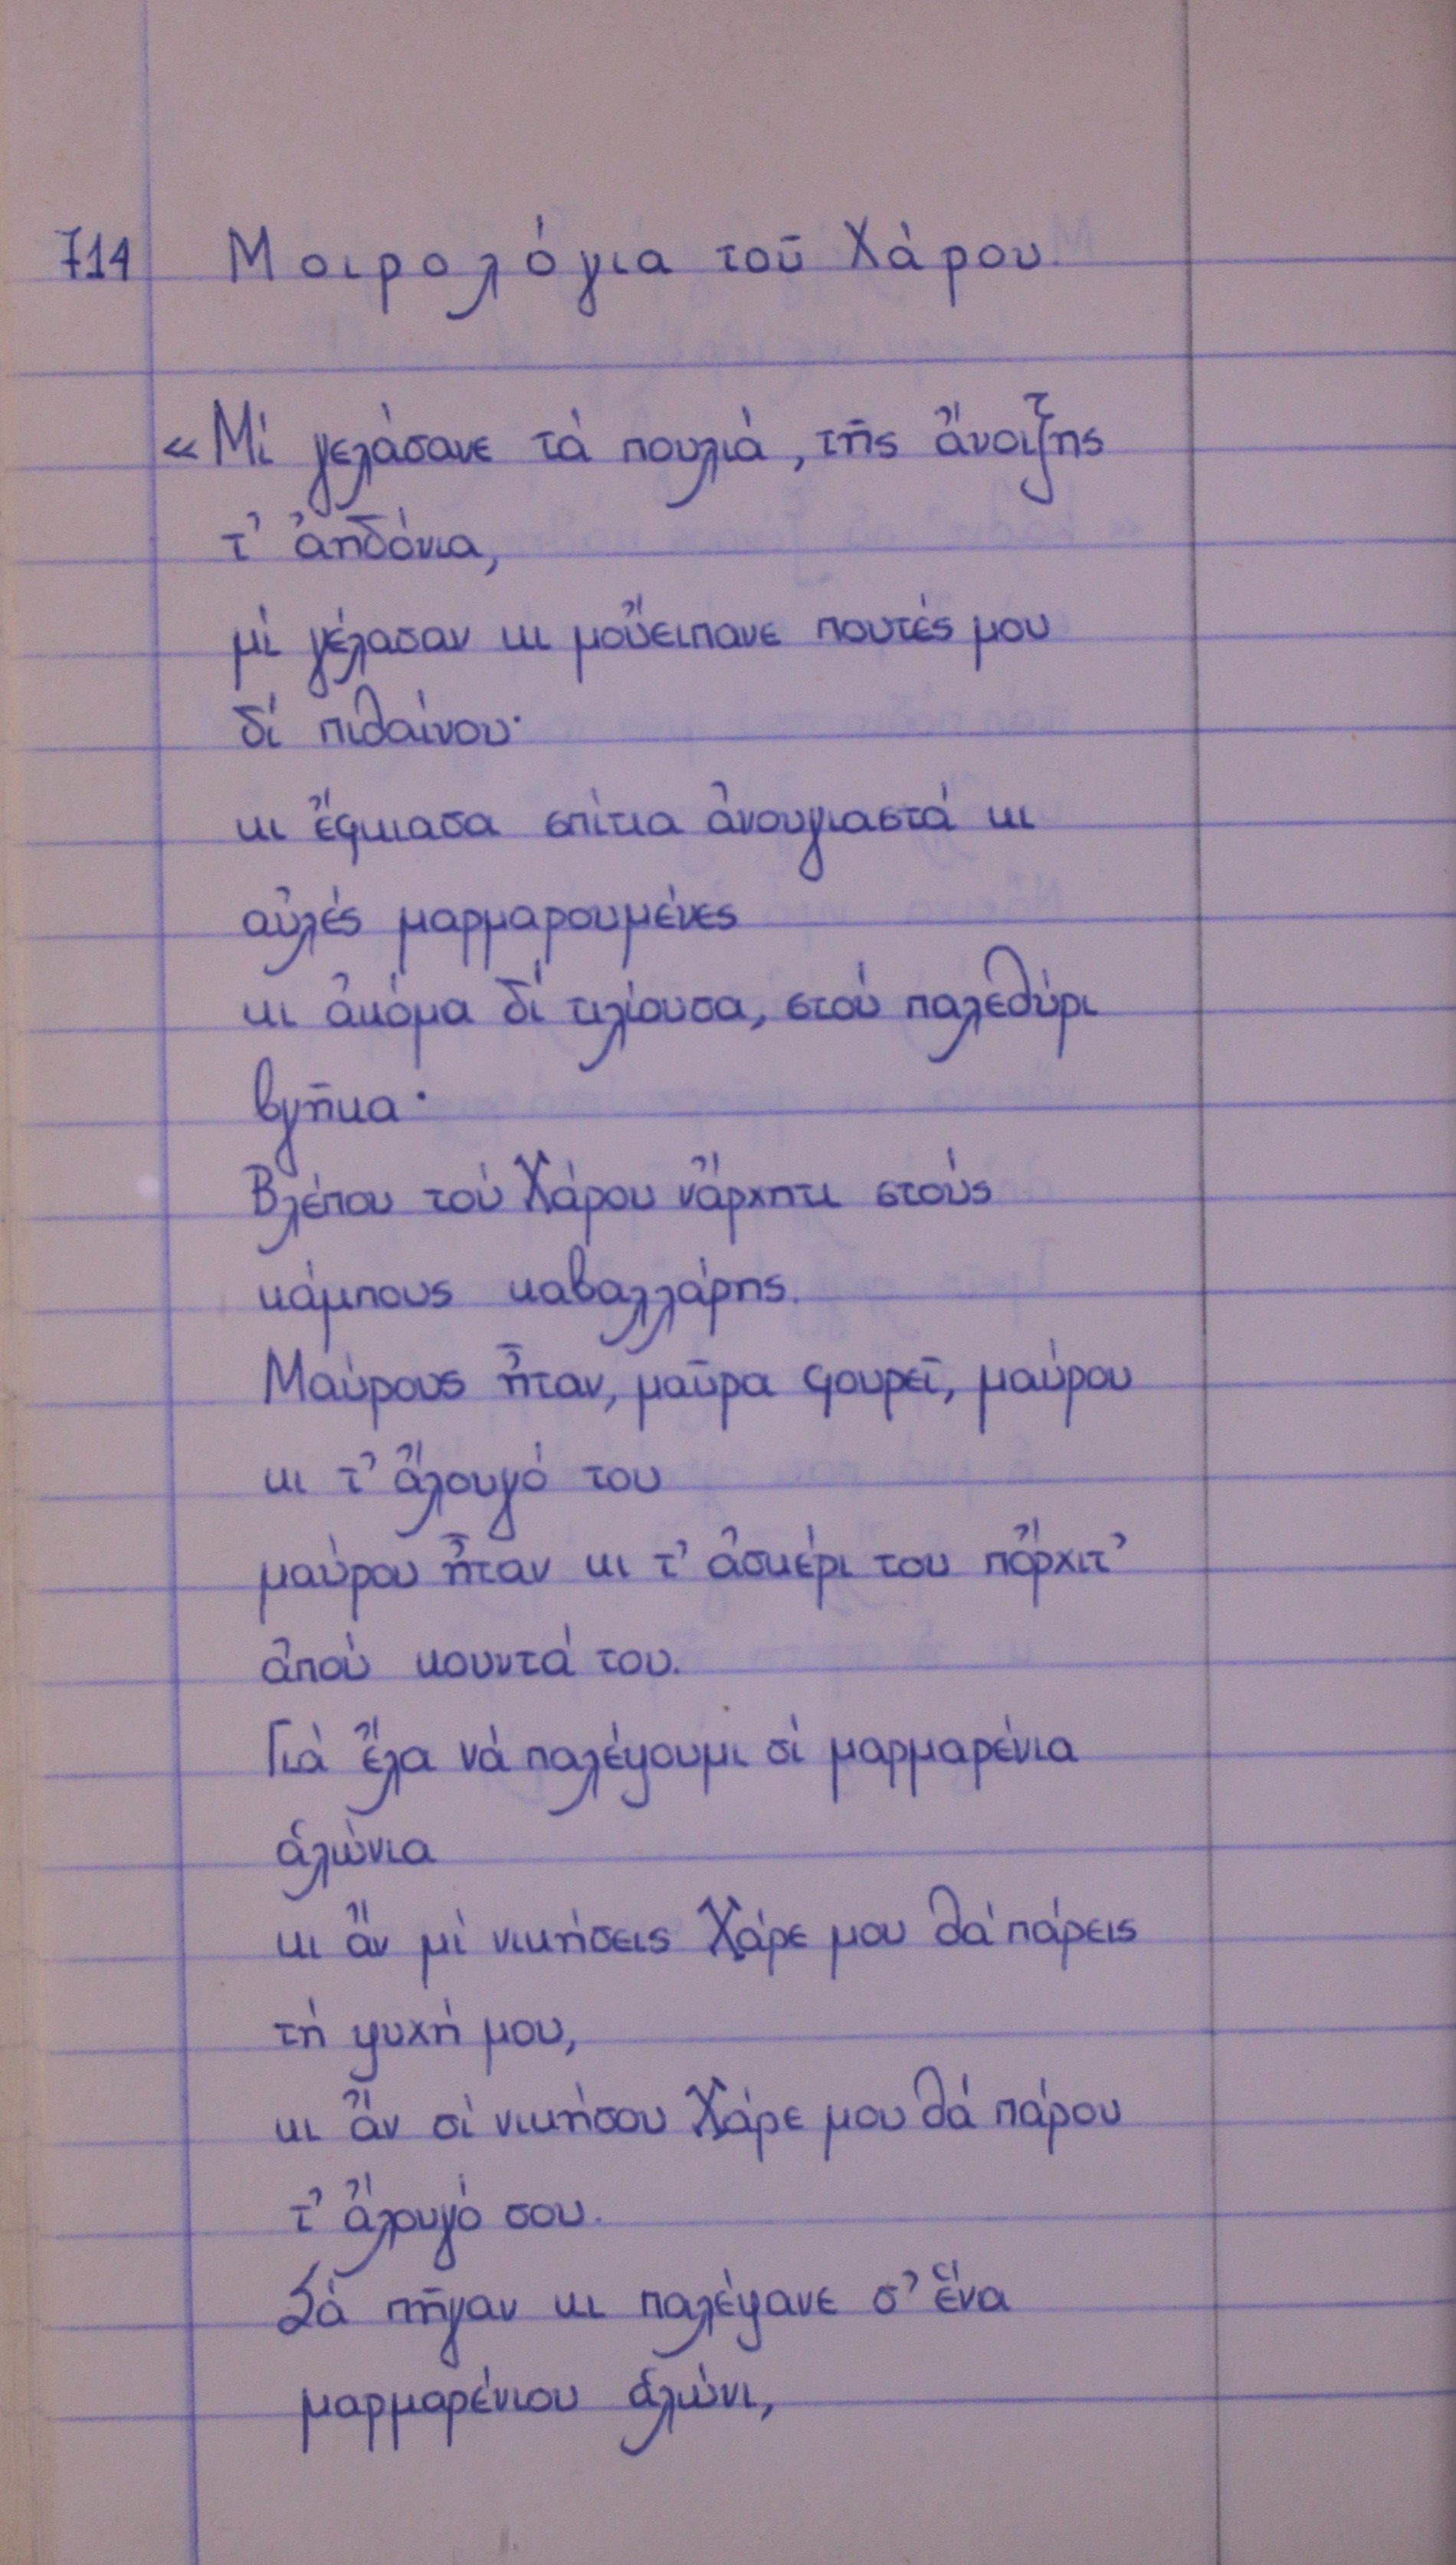 714 Μοιρολόγια τοῦ Χάρου.
«Μί γελάσανε τά πουλιά, τῆς ἄνοιξης
τ' ἀηδόνια,
μί γέλασαν κι μοὔειπανε πουτές μου
δί πιθαίνου·
κι ἔφκιασα σπίτια ἀνουγιαστά κι
αὐλές μαρμαρουμένες
κι ἀκόμα δί τιλίουσα, στού παλεθύρι
βγῆκα·
Βλέπου τού Χάρου νἄρχητι στούς
κάμπους καβαλλάρης.
Μαύρους ἦταν, μαῦρα φουρεῖ, μαύρου
κι τ' ἄλουγό του
μαύρου ἦταν κι τ' ἀσκέρι του πὄρχιτ'
ἀπού κουντά του.
Γιά ἔλα νά παλέψουμι σί μαρμαρένια
ἁλώνια
κι ἄν μί νικήσεις Χάρε μου θά πάρεις
τή ψυχή μου,
κι ἄν σί νικήσου Χάρε μου θά πάρου
τ' ἄλουγό σου.
Σά πῆγαν κι παλέψανε σ' ἕνα
μαρμαρένιου ἁλώνι,